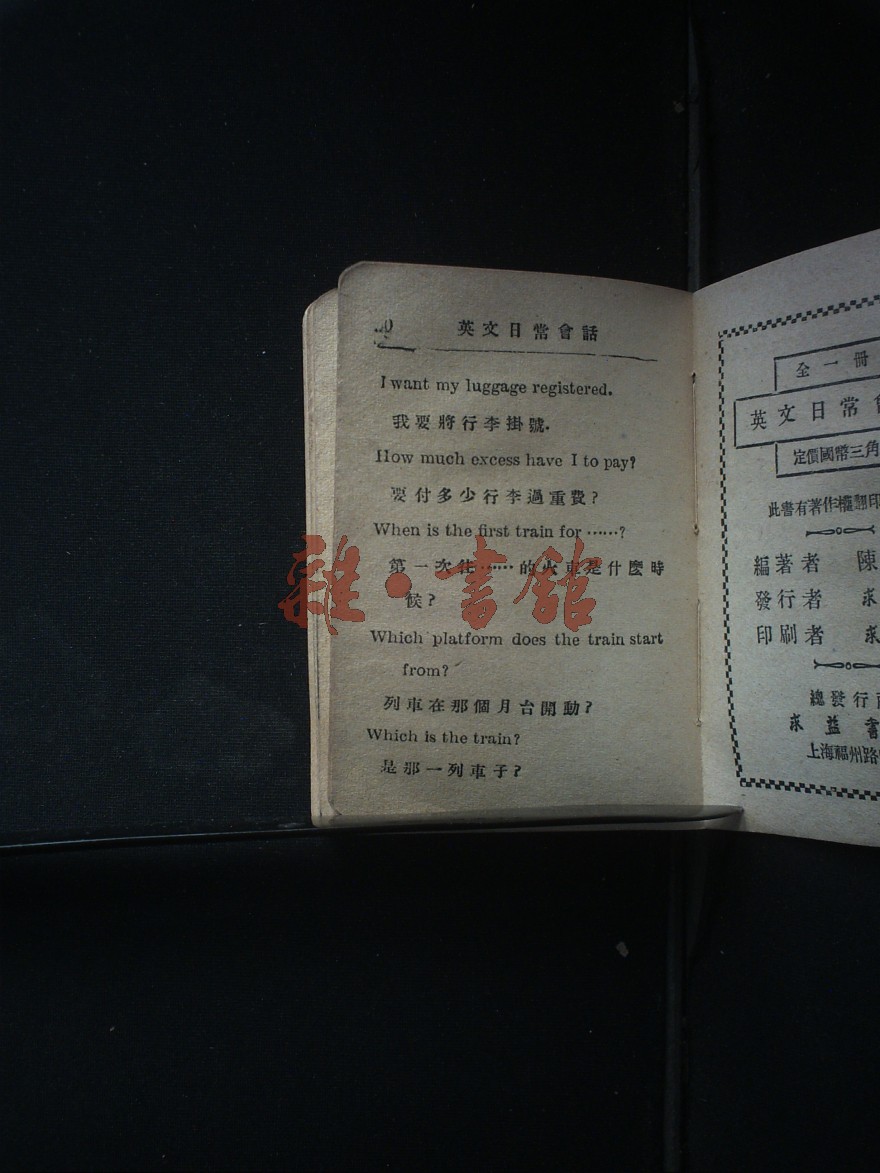 英文日常會話
I want my luggage registered.
我要將行李掛號.
How much excess have I to pay?
要付多少行李過重費？
When is the first train for ……?
第一次往……的火車是什麼時
候？
Which platform does the train start
from?
列車在那個月台開動？
Which is the train?
是那一列車子？
雜·書館
全一冊
英文日常會
定價國幣三角
此書有著作權翻印
編著者 陳
發行者 求
印刷者 求
總發行
求益書
上海福州路